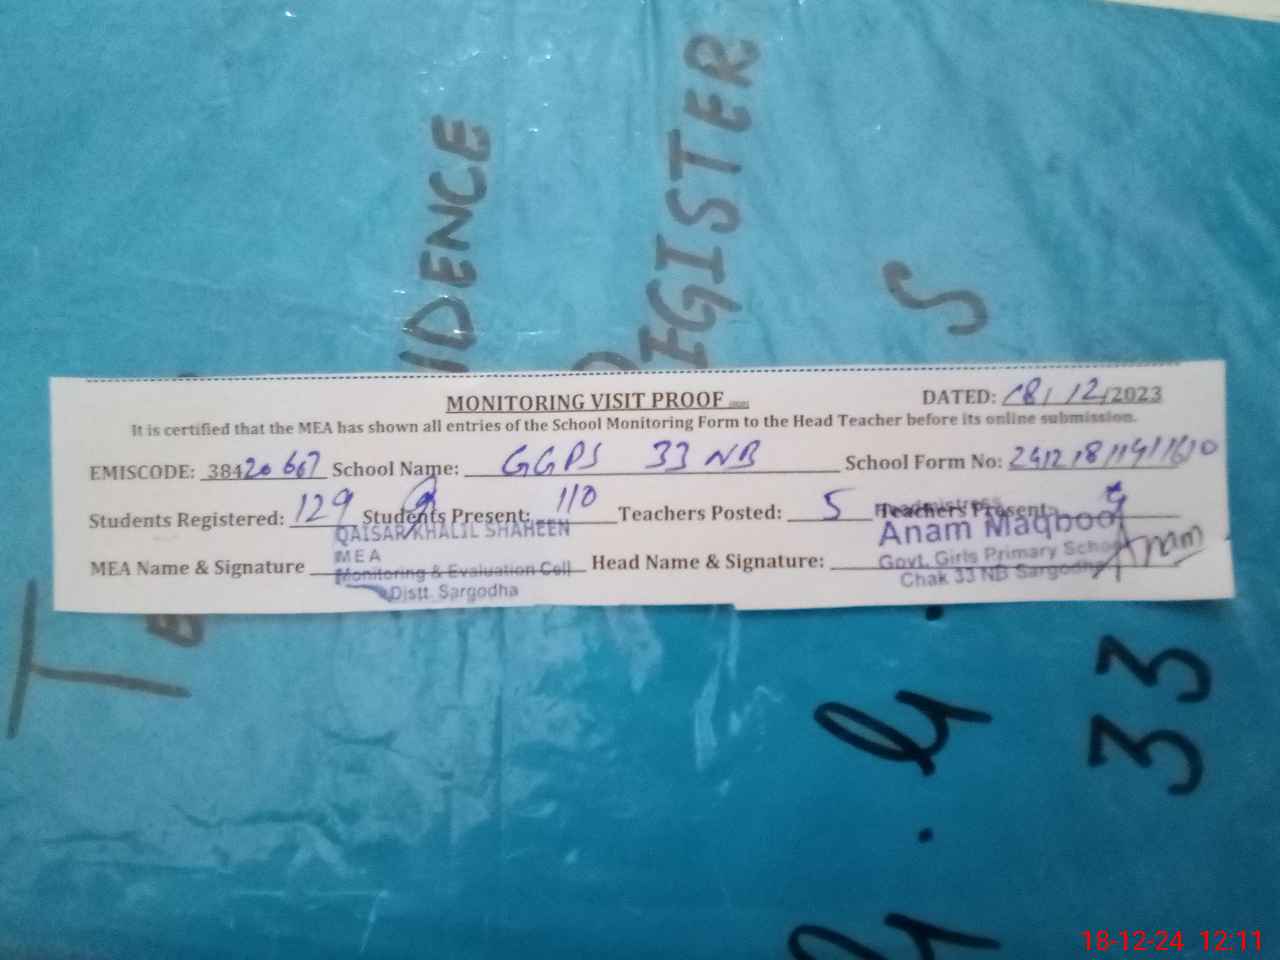 MONITORING VISIT PROOF
DATED: 18/12/2023
It is certified that the MEA has shown all entries of the School Monitoring Form to the Head Teacher before its online submission.
EMISCODE: 38420667 School Name: GGPS 33 NB School Form No:
Students Registered: 129 Students Present: 110 Teachers Posted: 5 Teachers Present:
QAISAR KHALIL SHAHEEN
MEA
Monitoring & Evaluation Cell
Distt. Sargodha
MEA Name & Signature Head Name & Signature: Anam
Headmistress
Anam Maqbool
Govt. Girls Primary School
Chak 33 NB Sargodha
IDENCE
REGISTER
S
33
18-12-24 12:11